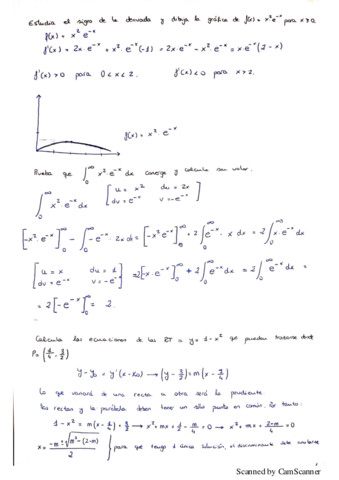 Estudia el signo de la derivada y dibuja la gráfica de f(x) = x²e⁻ˣ para x≥0.
f(x) = x² e⁻ˣ
f'(x) = 2x·e⁻ˣ + x²·e⁻ˣ(-1) = 2x·e⁻ˣ - x²·e⁻ˣ = x·e⁻ˣ(2-x)
f'(x) > 0 para 0 < x < 2. f'(x) < 0 para x > 2.
f(x) = x²·e⁻ˣ
Prueba que ∫₀^∞ x²·e⁻ˣ dx converge y calcula su valor.
∫₀^∞ x²·e⁻ˣ dx [u = x² du = 2x
dv = e⁻ˣ v = -e⁻ˣ]
[-x²·e⁻ˣ]₀^∞ - ∫₀^∞ -e⁻ˣ·2x dx = [-x²e⁻ˣ]₀^∞ + 2∫₀^∞ e⁻ˣ·x dx = 2∫₀^∞ x·e⁻ˣ dx
[u = x du = 1
dv = e⁻ˣ v = -e⁻ˣ] = 2[-x·e⁻ˣ]₀^∞ + 2∫₀^∞ e⁻ˣ dx = 2∫₀^∞ e⁻ˣ dx =
= 2[-e⁻ˣ]₀^∞ = 2.
Calcula las ecuaciones de las RT a y = 1-x² que pueden trazarse desde
y - y₀ = y'(x-x₀) →
Lo que variará de una recta a otra será la pendiente.
Las rectas y la parábola deben tener un sólo punto en común. Por tanto:
para que tenga 1 única solución, el discriminante debe anularse
Scanned by CamScanner